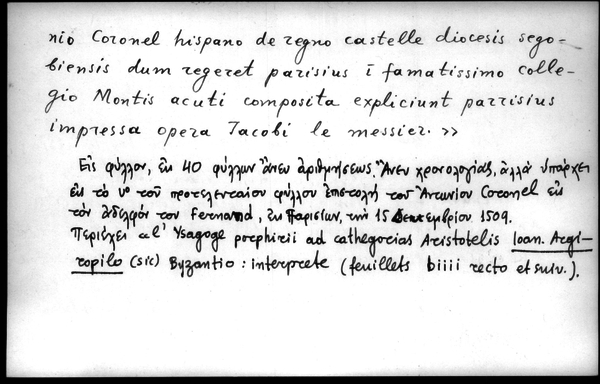 nio Coronel hispano de regno castelle diocesis sego-
biensis dum regeret parisius ī famatissimo colle-
gio Montis acuti composita expliciunt parrisius
impressa opera Jacobi le messier. >>
Εἰς φύλλον, ἐκ 40 φύλλων ἄνευ ἀριθμήσεως. Ἄνευ χρονολογίας, ἀλλὰ ὑπάρχει
εἰς τὸ vº τοῦ προτελευταίου φύλλου ἐπιστολὴ τοῦ Ἀντωνίου Coronel εἰς
τὸν ἀδελφόν του Fernand, ἐκ Παρισίων, τὴν 15 Σεπτεμβρίου 1509.
Περιέχει al' Ysagoge porphirii ad cathegorias Aristotelis Ioan. Argi-
ropilo (sic) Byzantio : interprete (feuillets biiii recto et suiv.).